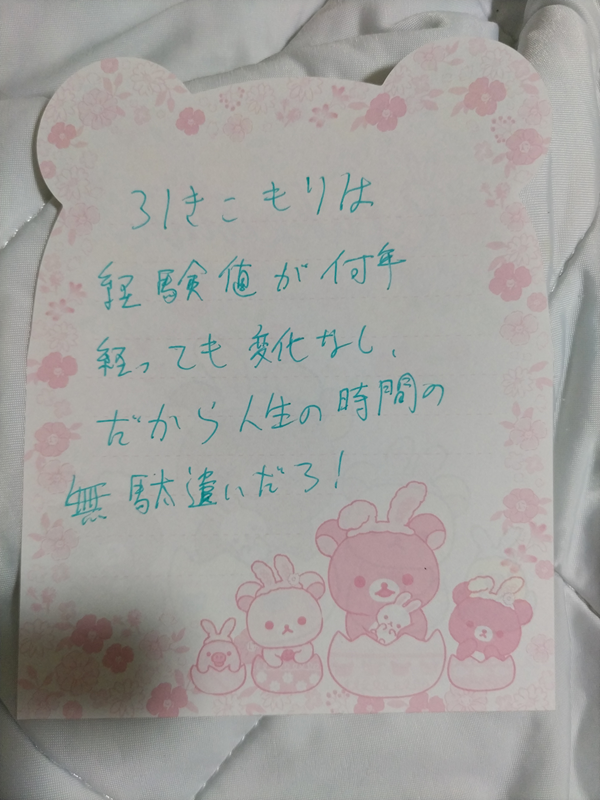 引きこもりは
経験値が何年
経っても変化なし、
だから人生の時間の
無駄遣いだろ!